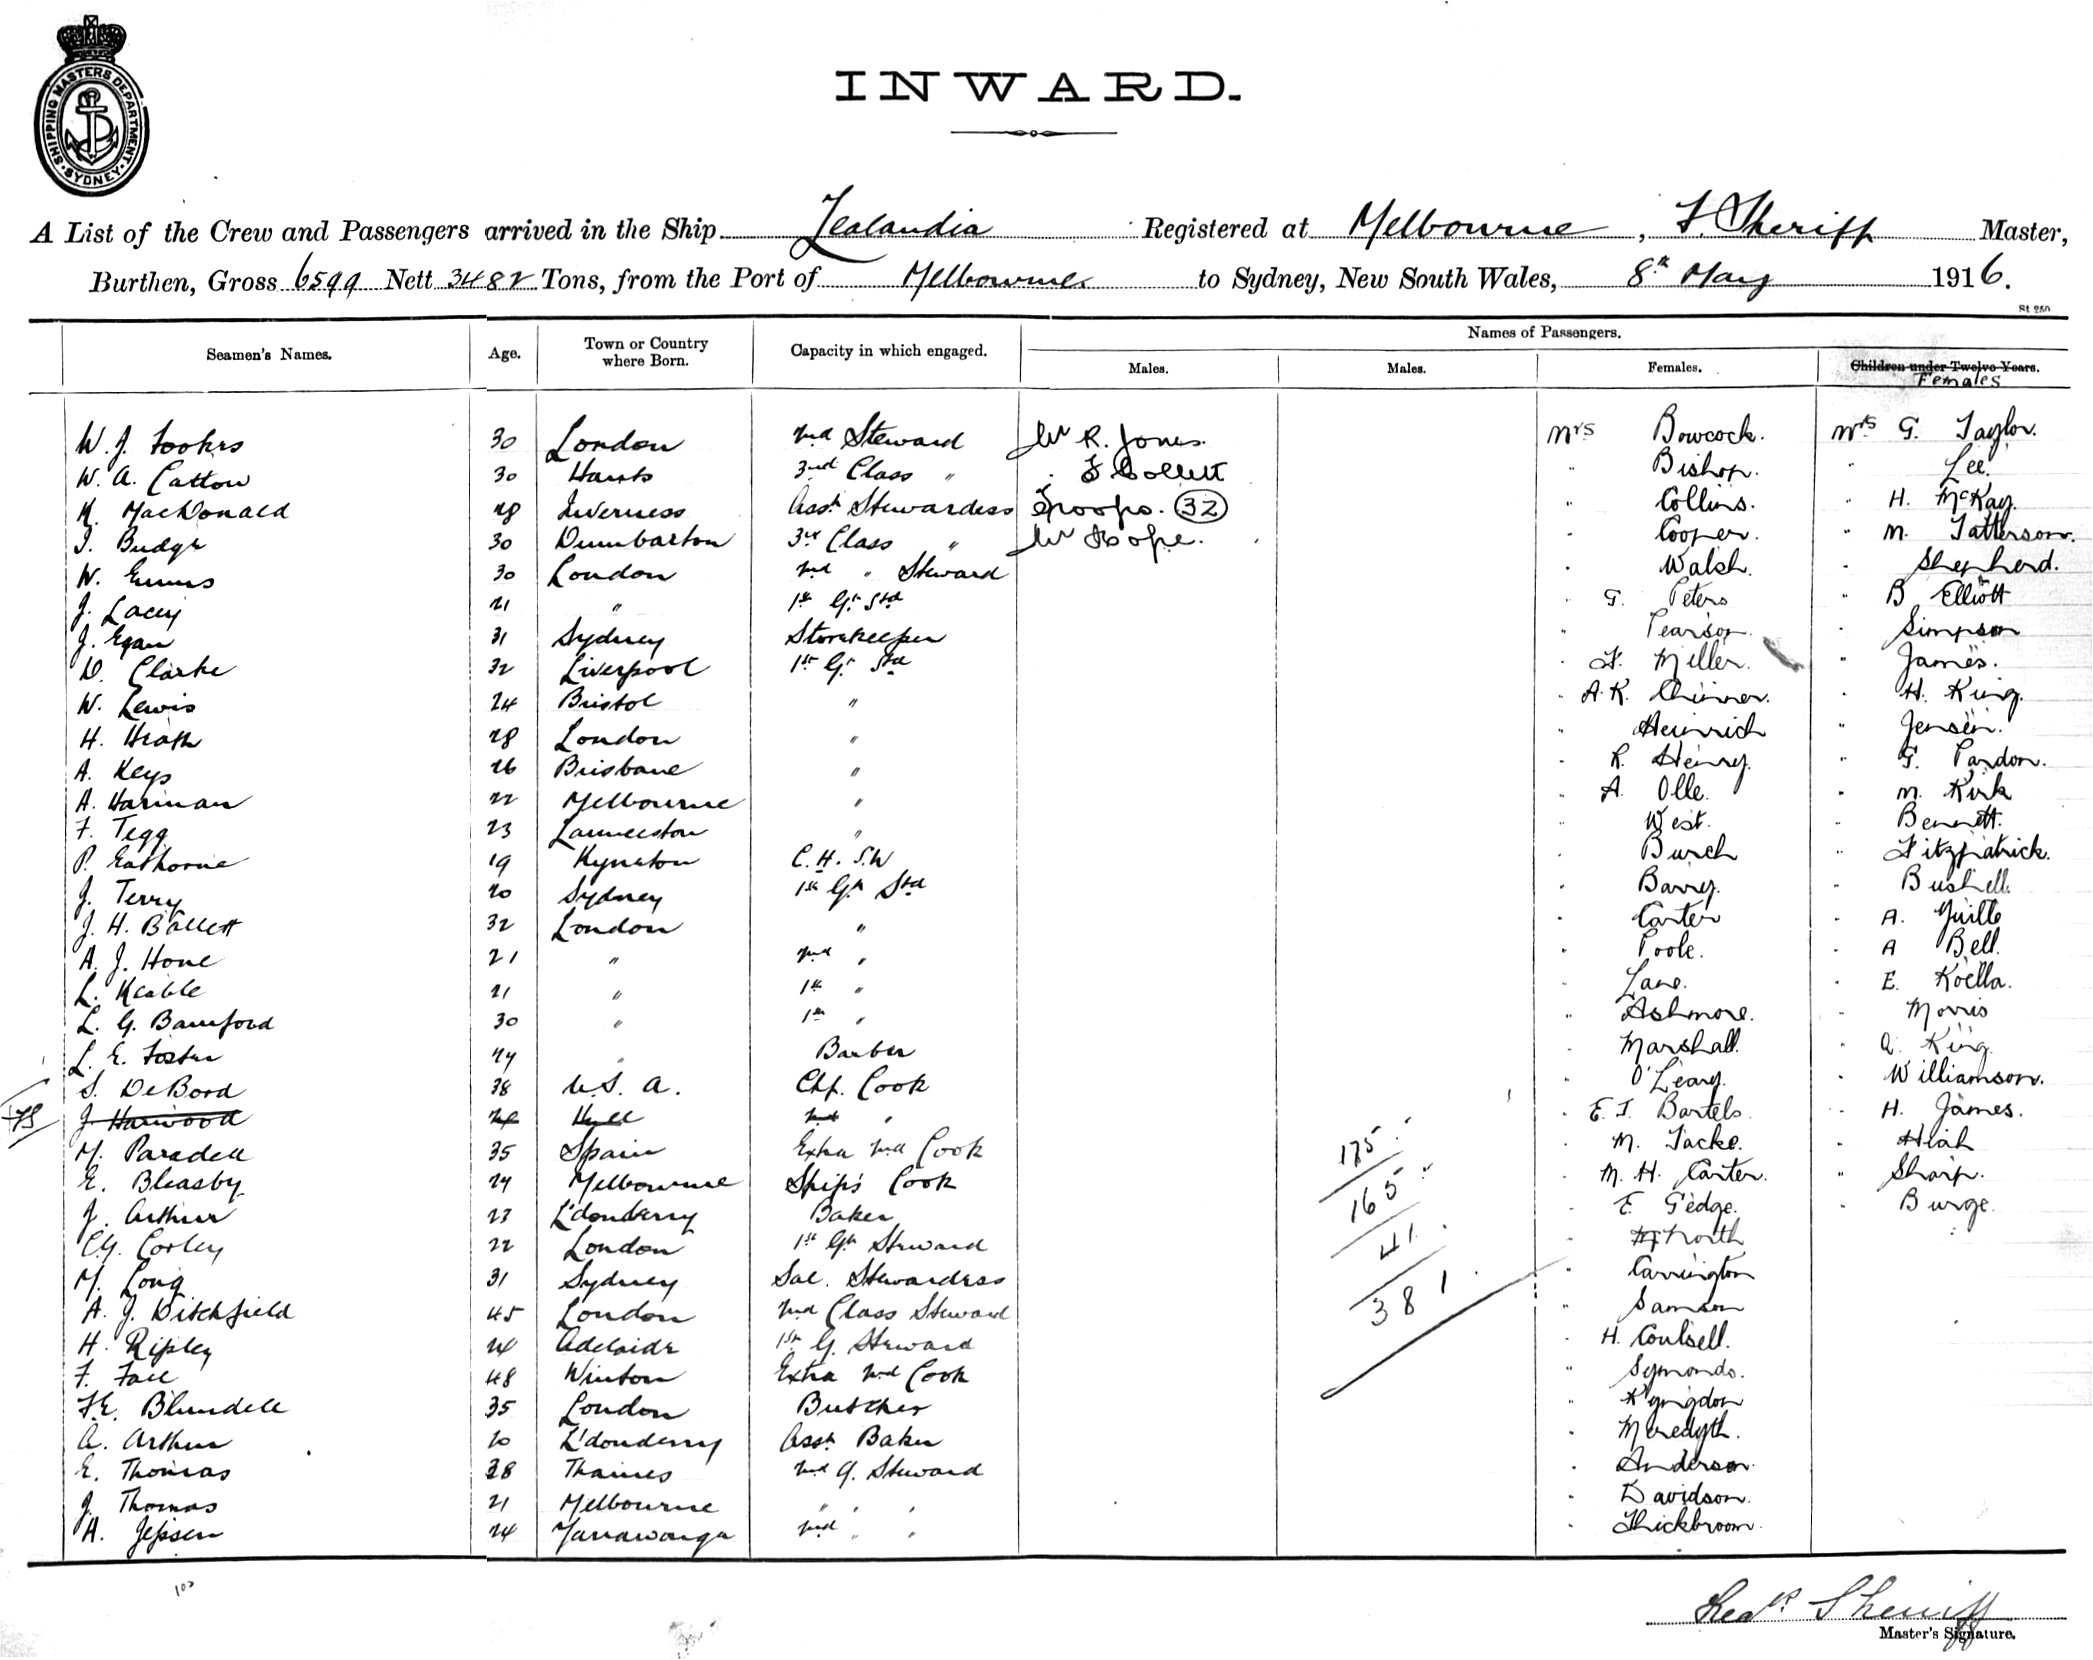 SHIPPING MASTERS DEPARTMENT · SYDNEY ·
INWARD.
A List of the Crew and Passengers arrived in the Ship Zealandia Registered at Melbourne, F. Sheriff Master,
Burthen, Gross 6599 Nett 3482 Tons, from the Port of Melbourne to Sydney, New South Wales, 8th May 1916.
St 250
Names of Passengers.
Seamen's Names. Age. Town or Country where Born. Capacity in which engaged. Males. Males. Females. Children under Twelve Years.
Females
W. J. Fookes 30 London 2nd Steward Mr R. Jones. Mrs Bowcock. Mrs G. Taylor.
W. A. Catton 30 Hants 3rd Class " " F Collett " Bishop. " Lee.
K. MacDonald 28 Inverness Asst Stewardess Troops. 32 " Collins. " H. McKay.
J. Budge 30 Dumbarton 3rd Class " Mr Hope. " Cooper. " M. Tatterson.
W. Emms 30 London 2nd " Steward " Walsh. " Shepherd.
J. Lacey 21 " 1st Gr Std " G. Peters " B Elliott
J. Egan 31 Sydney Storekeeper " Pearson. " Simpson
D. Clarke 32 Liverpool 1st Gr Std " F. Miller. " James.
W. Lewis 24 Bristol " " A. K. " H. King.
H. Heath 28 London " " Heinrich " Jensen.
A. Keys 26 Brisbane " " R. Henry. " G. Pardon.
A. Harman 22 Melbourne " " A. Olle. " M. Kirk
F. Tegg 23 Launceston " " West. " Bennett.
P. Eathorne 19 Kyneton C. H. S.W " Burch " Fitzpatrick.
J. Terry 20 Sydney 1st Gr Std " Barry. " Bushell.
J. H. Ballett 32 London " " Carter " A.
A. J. Hone 21 " 2nd " " Poole. " A Bell.
L. Keable 21 " 1st " " Lane. " E. Koella.
L. G. Bamford 30 " 1st " " Ashmore. " Morris
L. E. Foster 44 " Barber " Marshall. " A. King.
S. DeBord 38 U.S.A. Chf. Cook " O'Leary. " Williamson.
J. Harwood Hull 2nd " " E. J. Bartels " H. James.
M. Paradell 35 Spain Extra 2nd Cook 175 " M. Tacke. " Heah
E. Bleasby 24 Melbourne Ship's Cook 165 " M. H. Carter. " Sharp.
J. Arthur 23 L'donderry Baker " E Gedge. " Burge.
Corley 22 London 1st Gr Steward 41 " North
M. Long 31 Sydney Sal. Stewardess " Carrington
A. J. Ditchfield 45 London 2nd Class Steward 381 " Samson
H. Ripley 24 Adelaide 1st G. Steward " H. Coulsell.
F. Fall 48 Winton Extra 2nd Cook " Symonds.
F.E. Blundell 35 London Butcher " Kyngdon
A. Arthur 20 L'donderry Asst Baker " Meredyth.
E. Thomas 38 Thames 2nd G. Steward " Anderson
J. Thomas 21 Melbourne " " " " Davidson.
H. Jepsen 24 Yarrawonga 2nd " " " Thickbroom.
102
Sheriff
Master's Signature.